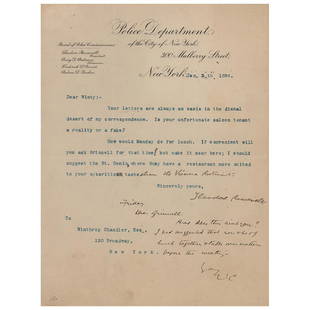 Police Department
of the City of New York.
300 Mulberry Street
Board of Police Commissioners
Theodore Roosevelt
President
Avery D. Andrews
Frederick D. Grant
Andrew D. Parker
New York, Jan.
Dear Winty:
Your letters are always an oasis in the dismal
desert of my correspondence. Is your unfortunate saloon tenant
a reality or a fake?
How would Monday do for lunch. If convenient will
you ask Grinnell for that time; but make it near here; I should
suggest the St. Denis, where they have a restaurant more suited
to your
Sincerely yours,
Theodore Roosevelt
Friday
Dear Grinnell
Has does this suit you?
I had suggested that you & he & I
lunch together & talk over matters
before the meeting.
To
Winthrop Chandler, Esq.,
120 Broadway,
New York.